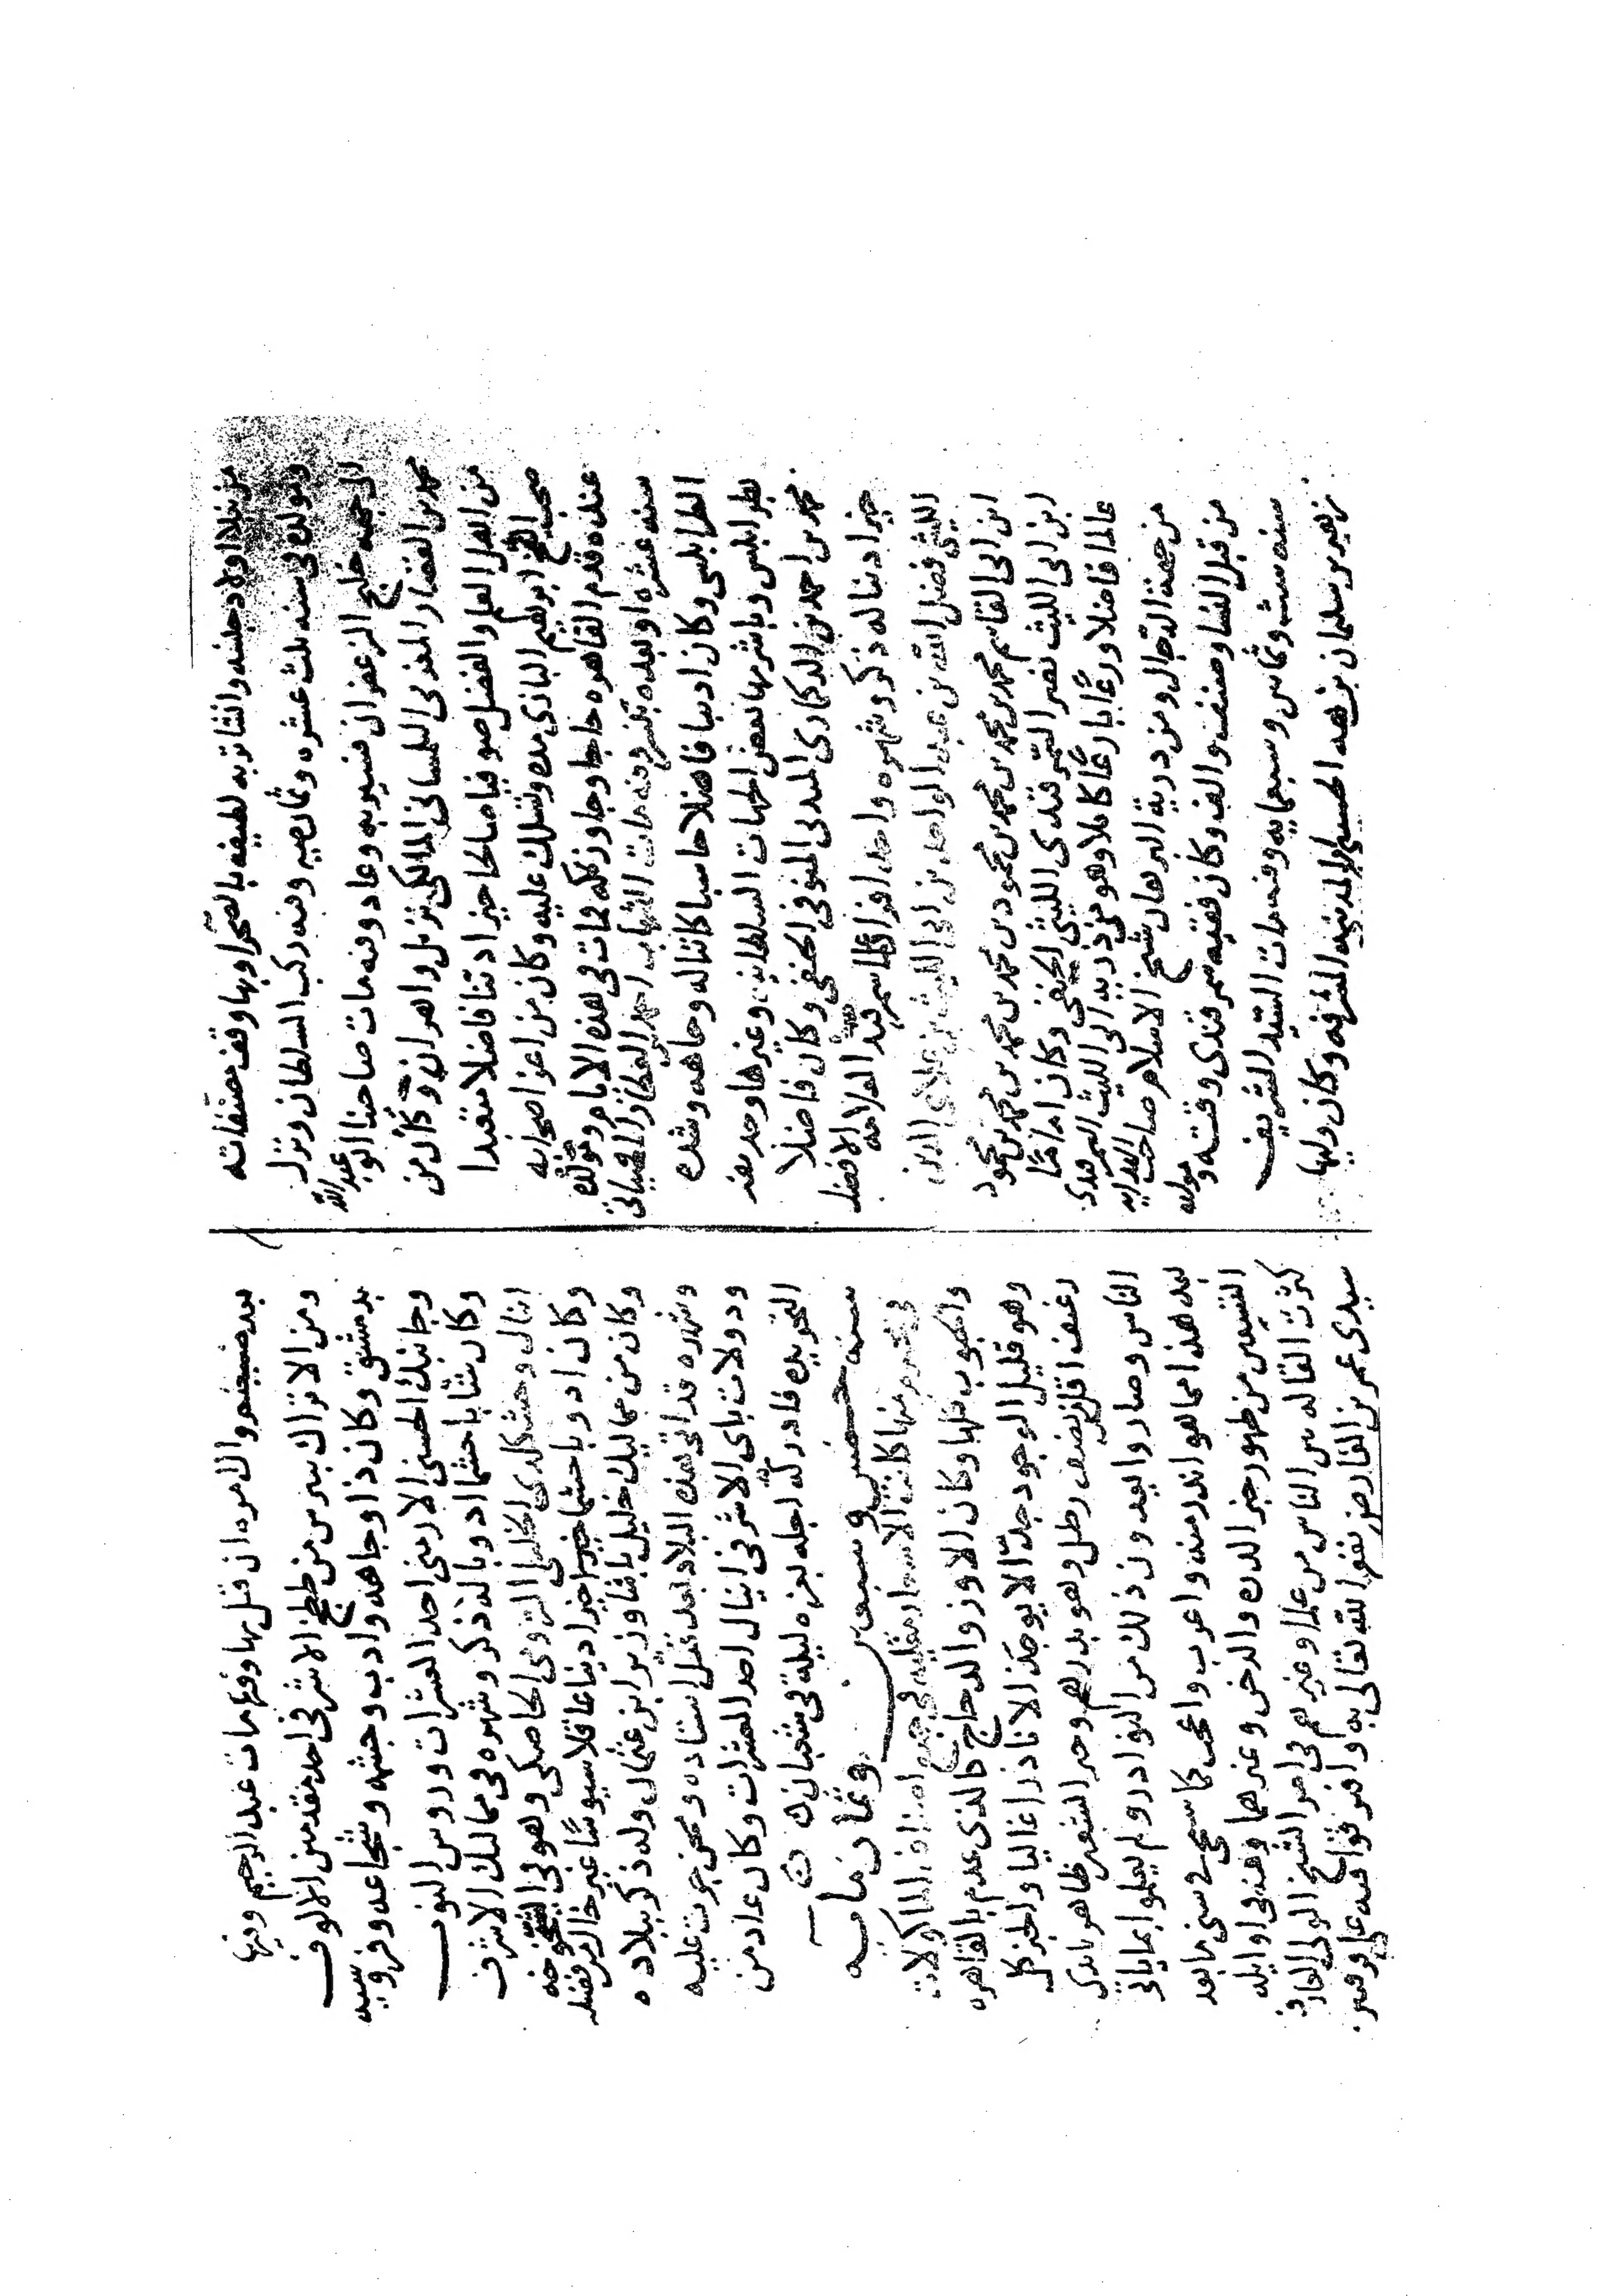 من نبلا اولاد جلسه وانشا تربه لطيفه بالصحرا وبها وقف مصنفاته
ومولده في سنه ثلث عشره وثمان ميه وفيه ركب السلطان ونزل
الى جهه خليج الزعفران فسير به وعاد وفيه مات صاحبنا ابو عبد الله
محمد بن القصار المغربي التلمساني المالكي نزيل واهران وكان من
من اهل العلم والفضل صوفيا صالحا خيرا دينا فاضلا متعبدا
صحب الشيخ ابرهيم التازي مده وتسلك عليه وكان من اعز اصحابه
عنده قدم القاهره حاجا وجاور بمكه فمات في هذه الايام ومولده
سنه عشره او بعده وفيه مات الشهاب احمد
الطرابلسي وكان اديبا فاضلا حاسبا كاتبا له وجاهه وشده
بطرابلس وباشر بها بعض الجهات السلطانيه وغيرها وحد بعد
محمد بن احمد بن المدني الحنفي وكان فاضلا
خيرا دينا له ذكر وشهره واحد افراد سمرقند العلامه الافضل
الليثي فضل الله بن عبد الواحد بن ابي الليث بن علاي الدين
ابن ابي القاسم محمد بن محمد بن محمد بن محمود بن محمد بن محمد بن محمد بن محمود
ابن ابي الليث نصر السمرقندي الليثي الحنفي وكان اماما
عالما فاضلا ورعا بارعا كاملا وهو من ذرية ابي الليث السمرقندي
من جهة الرجال ومن درية البرهان شيخ الاسلام صاحب الهدايه
من قبل النسا وصنف والف وكان فقيه سمرقندي وقته ومولده
سنه ست وثمانين وسبعمايه وفيه مات السيد الشريف
زهير بن سلمان بن هبه الحسيني المدينه المشرفه وكان وليها
بعد ضيغم والامره ان قتل بها وفيه مات عبد الرحيم وفيها
ومن الاتراك بيبرس من ططخ الاشرفي احد مقدمين الالوف
بدمشق وكان ذا وجاهه وادب وحشمه وشجاعه وفروسيه
وجانبك الحسني الاربني احد العشرات وروس النوب
وكان شابا حشما ادوبا له ذكر وشهره في مماليك الاشرف
اينال وحشكلدي الخليلي الرومي الخاصكي وهو في الشيخوخه
وكان ادوبا حشما خيرا دينا عاقلا سيوسا غير خال من فضله
وكان من مماليك خليل باشا وزير ابن عثمان وله ذكر ببلاده
وشهره قد اتى هذه البلاد بعد قتل استاده ومحن جرت عليه
ودولات باي الاشرفي اينال احد العشرات وكان عاد من
التجريده فادركه اجله بغزه ليلة في شعبان
سنه خمس وسبعين وثمان مايه
في محرم منها كانت الاسعار مغليه في جميع اصناف الماكولات
والحبوب كلها وكان الاوز والدجاج كالذي عدم بالقاهره
وهو قليل الوجود جدا لا يوجد الا نادرا غاليا والخبز كل
رغيف اقل من نصف رطل وهو بدرهم وجر السعر ظاهر بايدي
الناس وصاروا يعدون ذلك من النوادر ولم يعلموا بما ياتي
بعد هذا مما هو اندر منه واغرب واعجب كما سيجي في سني ما بعد
التسعين من ظهور خبز الدره والدخن وغيرهما وفيه في اوايله
كثرت القاله بين الناس من علما وغيرهم في امر الشيخ الولي العارف
سيدي عمر بن الفارض نفع الله تعالى به وافترقوا فيه على فرقتين